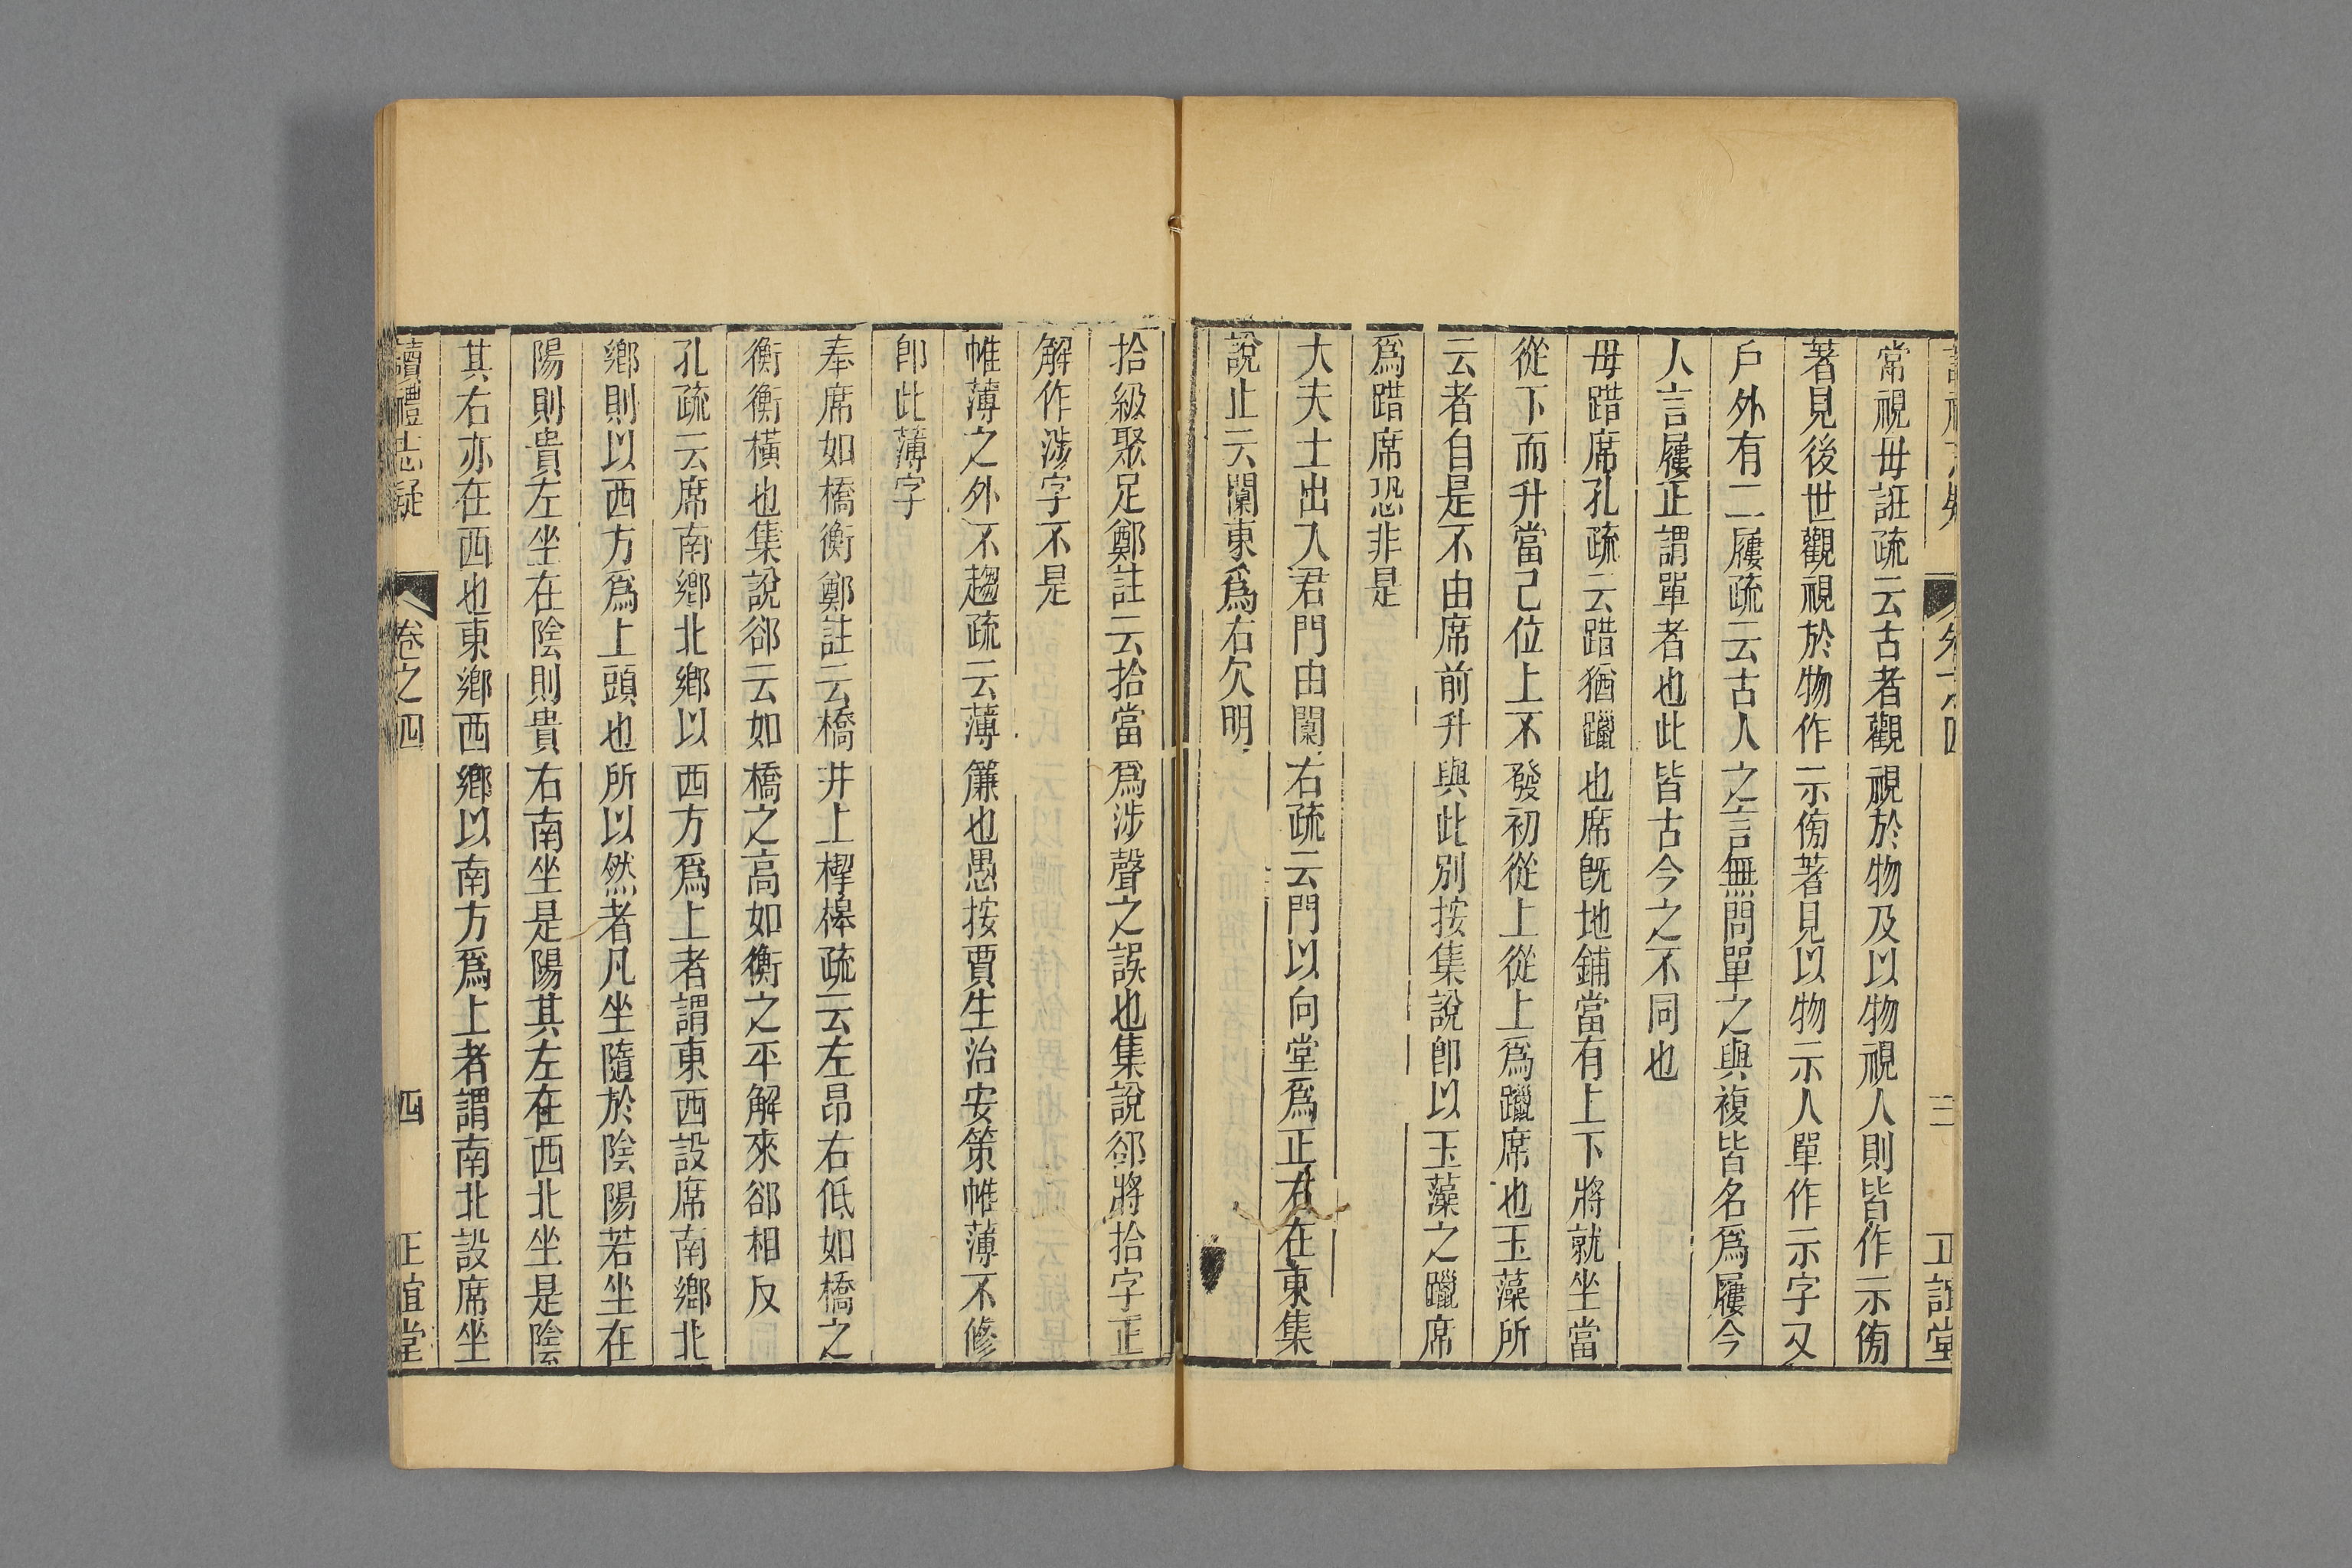 常視毋誑疏云古者觀視於物及以物視人則皆作示傍
著見後世觀視於物作示傍著見以物示人單作示字又
戶外有二屨疏云古人之言無問單之與複皆名爲屨今
人言屨正謂單者也此皆古今之不同也
毋踖席孔疏云踖猶躐也席旣地鋪當有上下將就坐當
從下而升當己位上不發初從上從上爲躐席也玉藻所
云者自是不由席前升與此別按集說卽以玉藻之躐席
爲踖席恐非是
大夫士出入君門由闑右疏云門以向堂爲正右在東集
說止云闑東爲右欠明
拾級聚足鄭註云拾當爲涉聲之誤也集說郤將拾字正
解作涉字不是
帷薄之外不趨疏云薄簾也愚按賈生治安策帷薄不修
卽此薄字
奉席如橋衡鄭註云橋井上㮮橰疏云左昂右低如橋之
衡衡橫也集說郤云如橋之高如衡之平解來郤相反
孔疏云席南鄉北鄉以西方爲上者謂東西設席南鄉北
鄉則以西方爲上頭也所以然者凡坐隨於陰陽若坐在
陽則貴左坐在陰則貴右南坐是陽其左在西北坐是陰
其右亦在西也東鄉西鄉以南方爲上者謂南北設席坐
讀禮志疑 卷之四 四 正誼堂